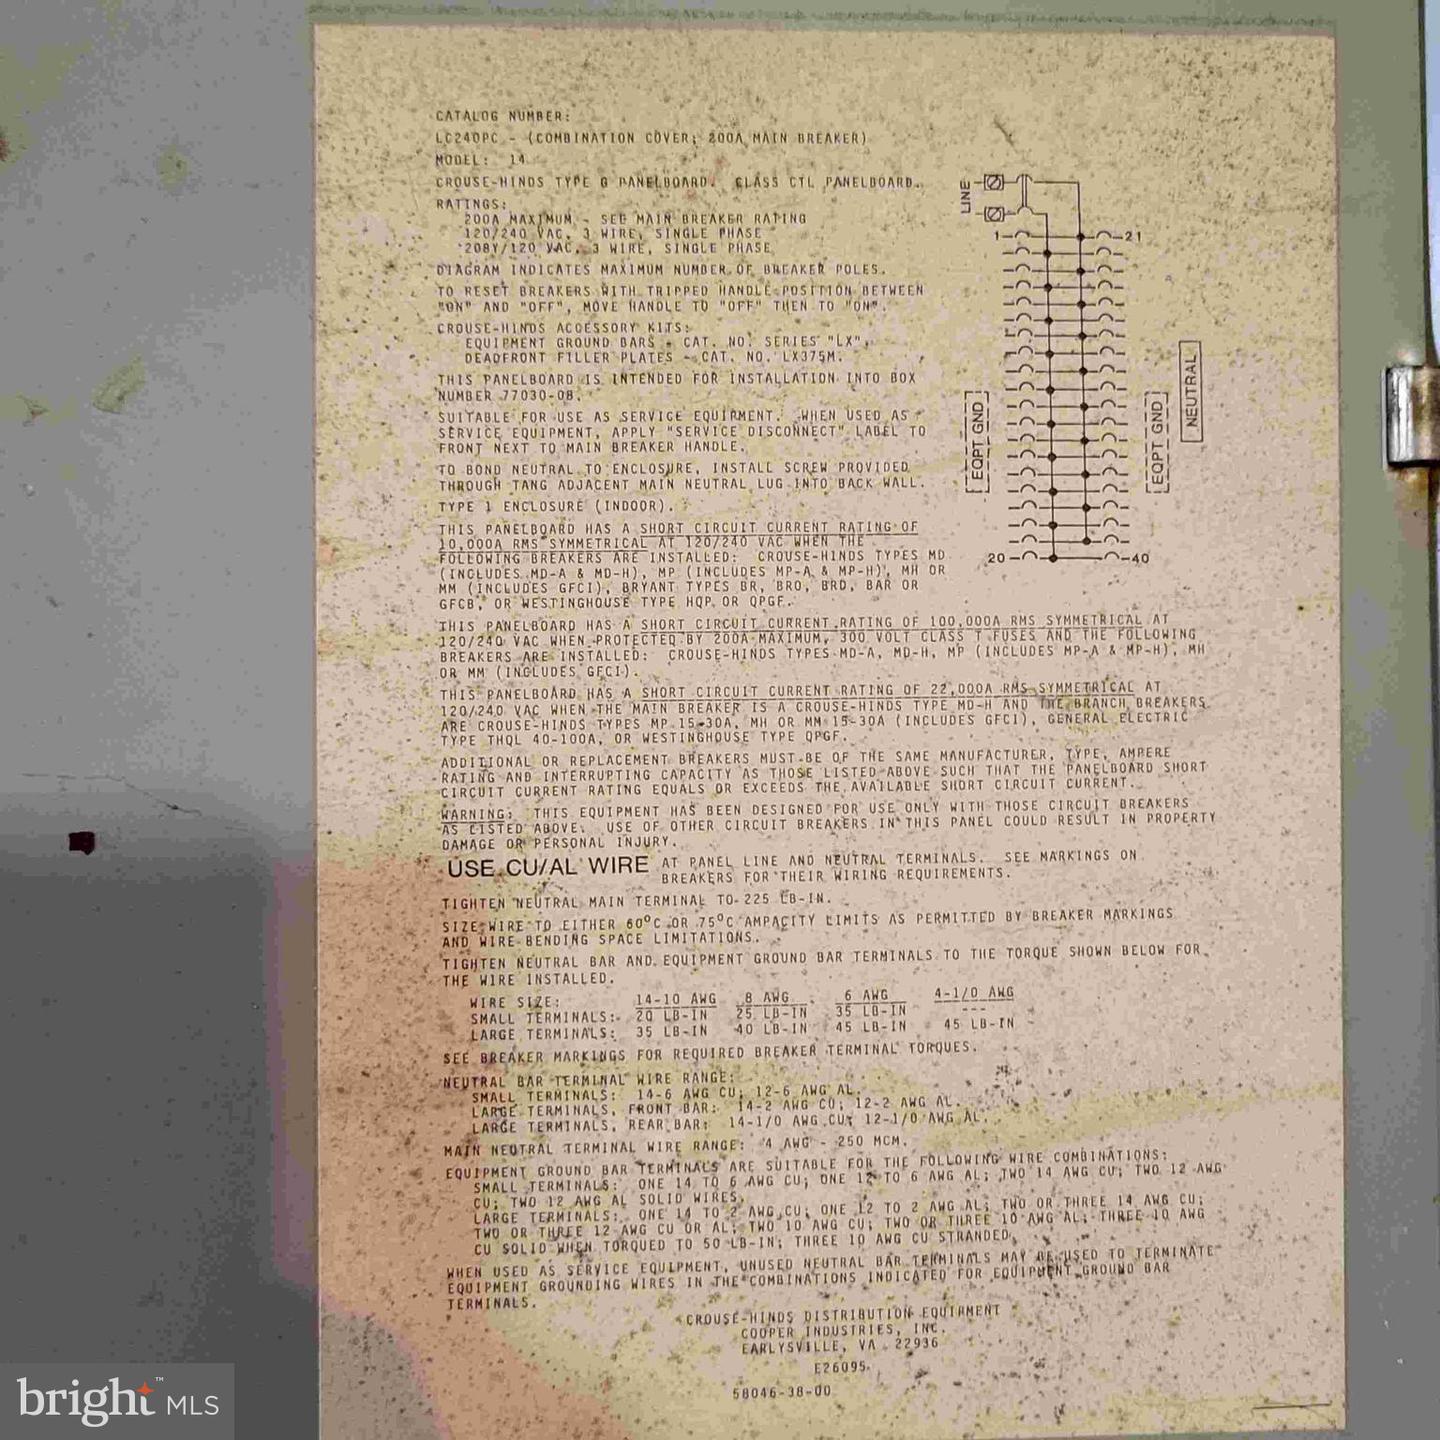 CATALOG NUMBER:
LC240PC - (COMBINATION COVER; 200A MAIN BREAKER)
MODEL: 14
CROUSE-HINDS TYPE G PANELBOARD. CLASS CTL PANELBOARD.
RATINGS:
200A MAXIMUM - SEE MAIN BREAKER RATING
120/240 VAC, 3 WIRE, SINGLE PHASE
208Y/120 VAC, 3 WIRE, SINGLE PHASE
DIAGRAM INDICATES MAXIMUM NUMBER OF BREAKER POLES.
TO RESET BREAKERS WITH TRIPPED HANDLE POSITION BETWEEN
"ON" AND "OFF", MOVE HANDLE TO "OFF" THEN TO "ON".
CROUSE-HINDS ACCESSORY KITS:
EQUIPMENT GROUND BARS - CAT. NO. SERIES "LX".
DEADFRONT FILLER PLATES - CAT. NO. LX375M.
THIS PANELBOARD IS INTENDED FOR INSTALLATION INTO BOX
NUMBER 77030-08.
SUITABLE FOR USE AS SERVICE EQUIPMENT. WHEN USED AS
SERVICE EQUIPMENT, APPLY "SERVICE DISCONNECT" LABEL TO
FRONT NEXT TO MAIN BREAKER HANDLE.
TO BOND NEUTRAL TO ENCLOSURE, INSTALL SCREW PROVIDED
THROUGH TANG ADJACENT MAIN NEUTRAL LUG INTO BACK WALL.
TYPE 1 ENCLOSURE (INDOOR).
LINE
1 21
EQPT GND
EQPT GND
NEUTRAL
20 40
THIS PANELBOARD HAS A SHORT CIRCUIT CURRENT RATING OF
10,000A RMS SYMMETRICAL AT 120/240 VAC WHEN THE
FOLLOWING BREAKERS ARE INSTALLED: CROUSE-HINDS TYPES MD
(INCLUDES MD-A & MD-H), MP (INCLUDES MP-A & MP-H), MH OR
MM (INCLUDES GFCI), BRYANT TYPES BR, BRO, BRD, BAR OR
GFCB, OR WESTINGHOUSE TYPE HQP OR QPGF.
THIS PANELBOARD HAS A SHORT CIRCUIT CURRENT RATING OF 100,000A RMS SYMMETRICAL AT
120/240 VAC WHEN PROTECTED BY 200A MAXIMUM, 300 VOLT CLASS T FUSES AND THE FOLLOWING
BREAKERS ARE INSTALLED: CROUSE-HINDS TYPES MD-A, MD-H, MP (INCLUDES MP-A & MP-H), MH
OR MM (INCLUDES GFCI).
THIS PANELBOARD HAS A SHORT CIRCUIT CURRENT RATING OF 22,000A RMS SYMMETRICAL AT
120/240 VAC WHEN THE MAIN BREAKER IS A CROUSE-HINDS TYPE MD-H AND THE BRANCH BREAKERS
ARE CROUSE-HINDS TYPES MP 15-30A, MH OR MM 15-30A (INCLUDES GFCI), GENERAL ELECTRIC
TYPE THQL 40-100A, OR WESTINGHOUSE TYPE QPGF.
ADDITIONAL OR REPLACEMENT BREAKERS MUST BE OF THE SAME MANUFACTURER, TYPE, AMPERE
RATING AND INTERRUPTING CAPACITY AS THOSE LISTED ABOVE SUCH THAT THE PANELBOARD SHORT
CIRCUIT CURRENT RATING EQUALS OR EXCEEDS THE AVAILABLE SHORT CIRCUIT CURRENT.
WARNING: THIS EQUIPMENT HAS BEEN DESIGNED FOR USE ONLY WITH THOSE CIRCUIT BREAKERS
AS LISTED ABOVE. USE OF OTHER CIRCUIT BREAKERS IN THIS PANEL COULD RESULT IN PROPERTY
DAMAGE OR PERSONAL INJURY.
USE CU/AL WIRE AT PANEL LINE AND NEUTRAL TERMINALS. SEE MARKINGS ON
BREAKERS FOR THEIR WIRING REQUIREMENTS.
TIGHTEN NEUTRAL MAIN TERMINAL TO 225 LB-IN.
SIZE WIRE TO EITHER 60°C OR 75°C AMPACITY LIMITS AS PERMITTED BY BREAKER MARKINGS
AND WIRE BENDING SPACE LIMITATIONS.
TIGHTEN NEUTRAL BAR AND EQUIPMENT GROUND BAR TERMINALS TO THE TORQUE SHOWN BELOW FOR
THE WIRE INSTALLED.
WIRE SIZE: 14-10 AWG 8 AWG 6 AWG 4-1/0 AWG
SMALL TERMINALS: 20 LB-IN 25 LB-IN 35 LB-IN ---
LARGE TERMINALS: 35 LB-IN 40 LB-IN 45 LB-IN 45 LB-IN
SEE BREAKER MARKINGS FOR REQUIRED BREAKER TERMINAL TORQUES.
NEUTRAL BAR TERMINAL WIRE RANGE:
SMALL TERMINALS: 14-6 AWG CU; 12-6 AWG AL.
LARGE TERMINALS, FRONT BAR: 14-2 AWG CU; 12-2 AWG AL.
LARGE TERMINALS, REAR BAR: 14-1/0 AWG CU; 12-1/0 AWG AL.
MAIN NEUTRAL TERMINAL WIRE RANGE: 4 AWG - 250 MCM.
EQUIPMENT GROUND BAR TERMINALS ARE SUITABLE FOR THE FOLLOWING WIRE COMBINATIONS:
SMALL TERMINALS: ONE 14 TO 6 AWG CU; ONE 12 TO 6 AWG AL; TWO 14 AWG CU; TWO 12 AWG
CU; TWO 12 AWG AL SOLID WIRES.
LARGE TERMINALS: ONE 14 TO 2 AWG CU; ONE 12 TO 2 AWG AL; TWO OR THREE 14 AWG CU;
TWO OR THREE 12 AWG CU OR AL; TWO 10 AWG CU; TWO OR THREE 10 AWG AL; THREE 10 AWG
CU SOLID WHEN TORQUED TO 50 LB-IN; THREE 10 AWG CU STRANDED.
WHEN USED AS SERVICE EQUIPMENT, UNUSED NEUTRAL BAR TERMINALS MAY BE USED TO TERMINATE
EQUIPMENT GROUNDING WIRES IN THE COMBINATIONS INDICATED FOR EQUIPMENT GROUND BAR
TERMINALS.
CROUSE-HINDS DISTRIBUTION EQUIPMENT
COOPER INDUSTRIES, INC.
EARLYSVILLE, VA 22936
E26095
58046-38-00
bright MLS